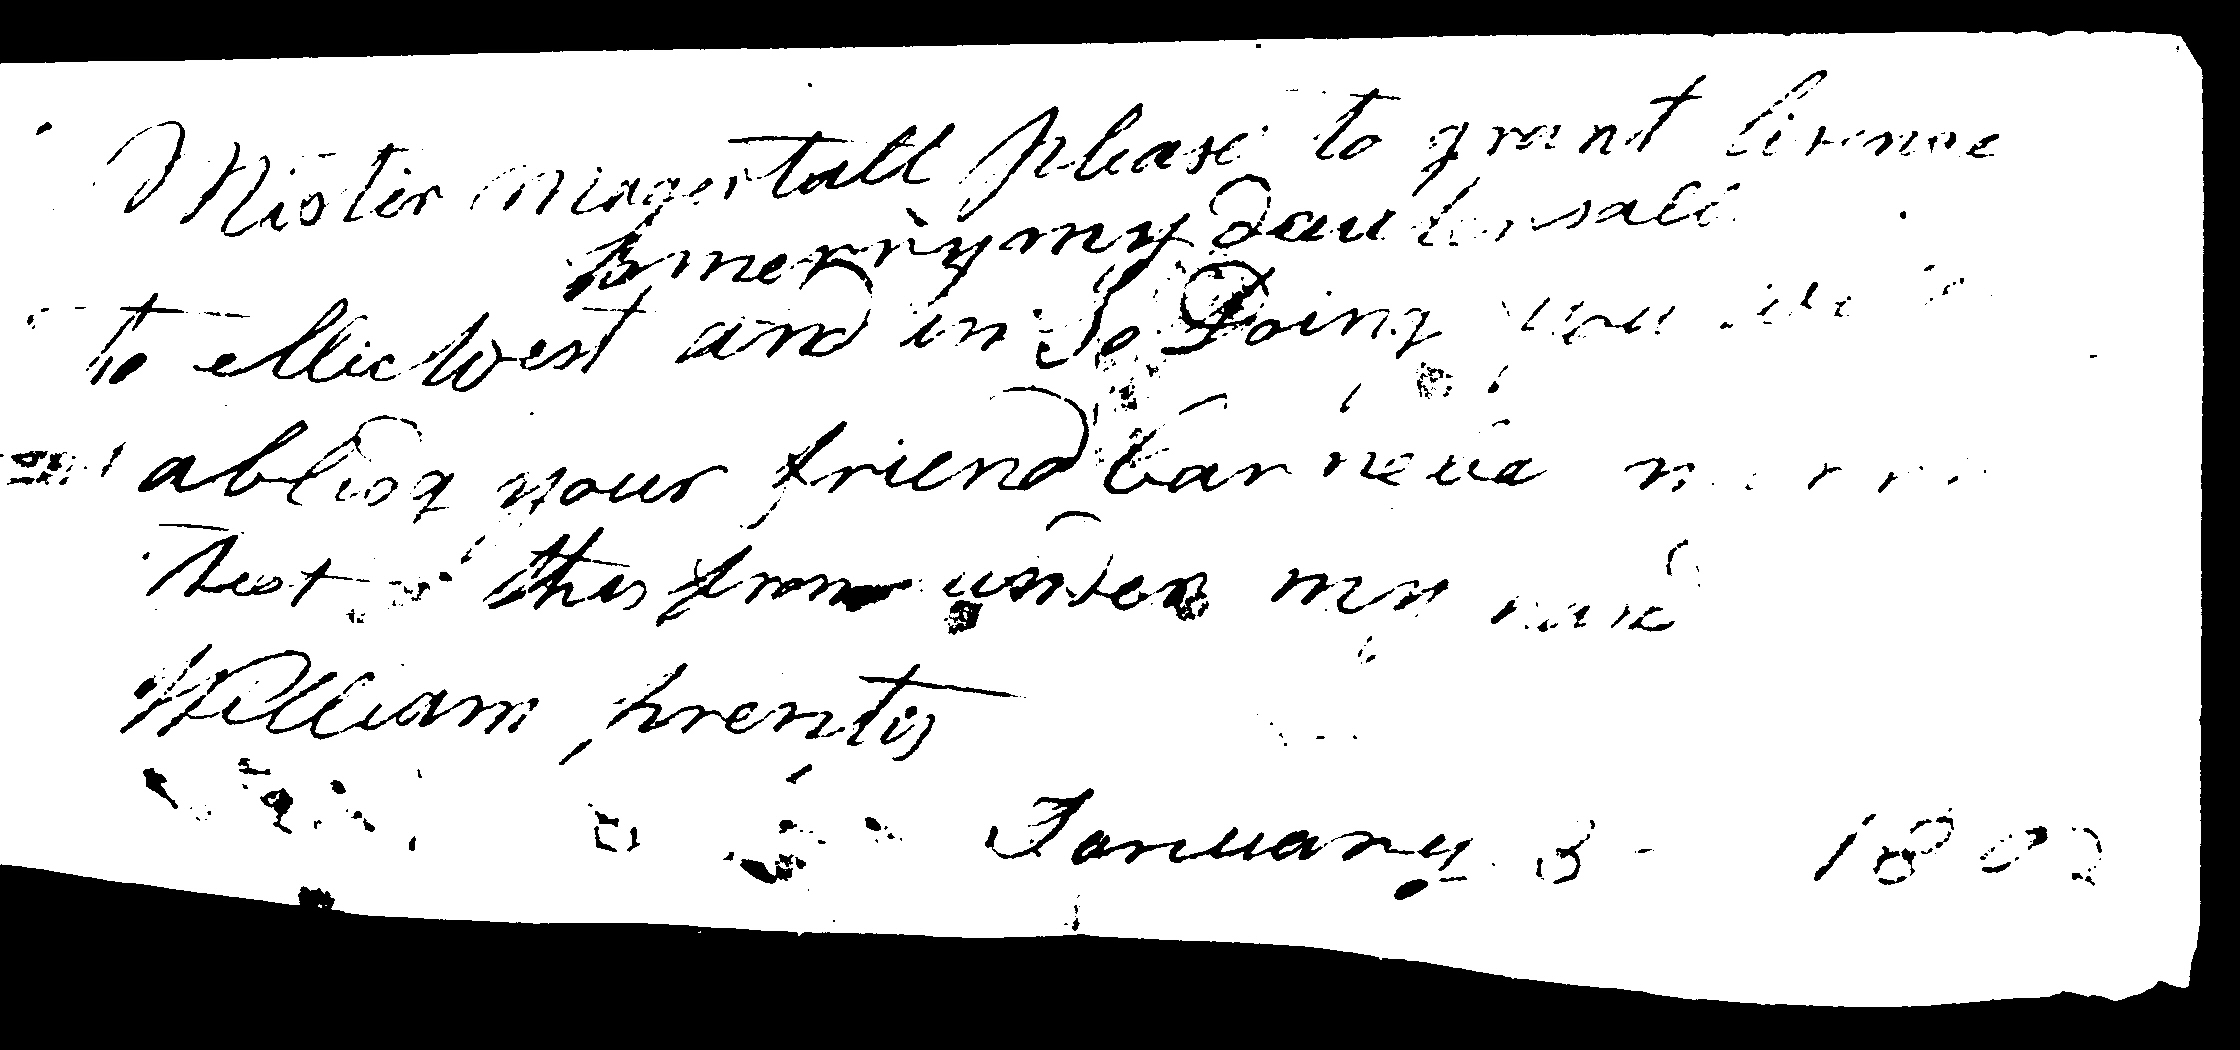 Mister magertall please to grant lisense
to merry my dautersall
to ellic West and in So Doing you will
ablisg your friend barneba
Test this from under my hand
William prentis
January 3 1802